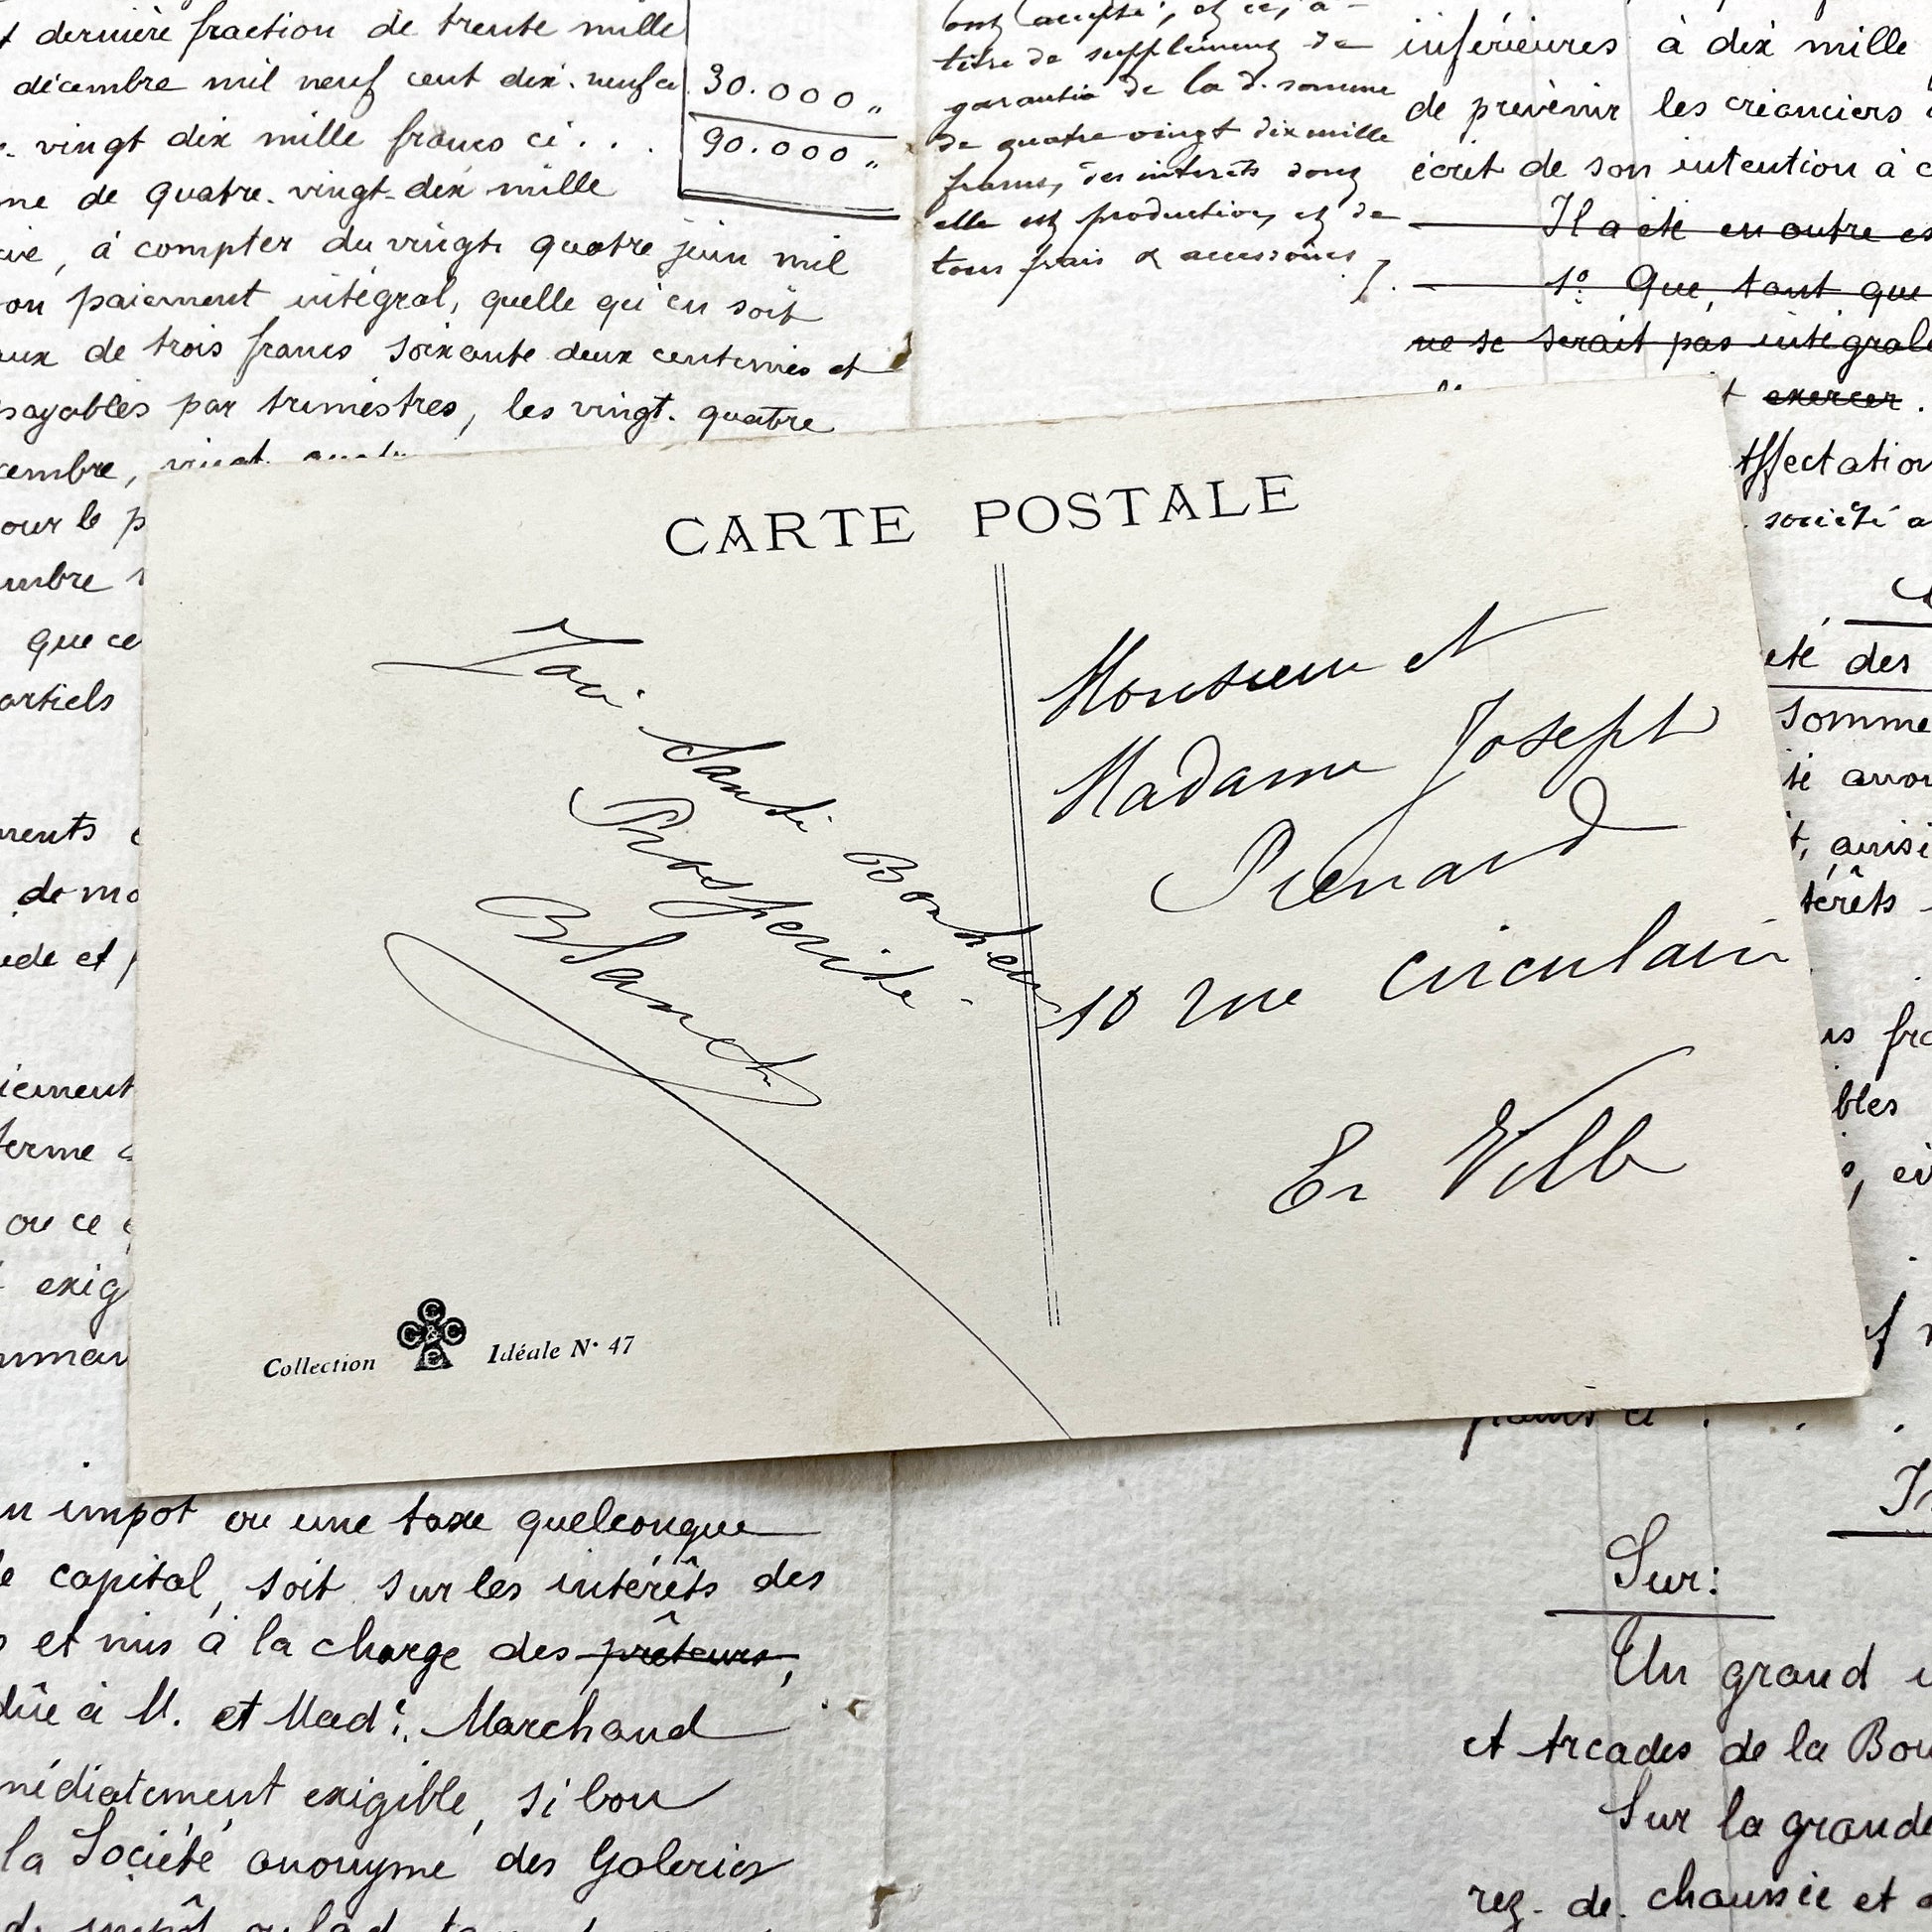 dernière fraction de trente mille
décembre mil neuf cent dix-neuf ci
30.000 "
vingt dix mille francs ci . . .
90.000 "
me de quatre-vingt-dix mille
, à compter du vingt quatre juin mil
on paiement intégral, quelle qu'en soit
aux de trois francs soixante deux centimes et
payables par trimestres, les vingt-quatre
cembre, vingt quatre
our le p
mbre
que ce
artiels
de mo
iement
terme
ou ce
exig
ont accepté, et ce, à
titre de supplément de
garantie de la d. somme
de quatre vingt dix mille
francs, des intérêts dont
elle est productive, et de
tous frais & accessoires /.
inférieures à dix mille
de prévenir les créanciers
écrit de son intention à c
Il a été en outre es
1º Que, tant que
ne se serait pas intégrale
exercer.
Affectation
société a
été des
somme
ainsi
térêts
fra
bles
CARTE POSTALE
Joie Santé Bonheur
Prospérité -
Blanch
Monsieur et
Madame Joseph
10 rue circulaire
En Ville
Collection C C & C Cie Idéale Nº 47
un impôt ou une taxe quelconque
le capital, soit sur les intérêts des
et mis à la charge des prêteurs,
dûe à M. et Made. Marchand
médiatement exigible, si bon
la Société anonyme des Galeries
Sur:
Un grand
et Arcades de la Bou
Sur la grande
rez-de-chaussée et